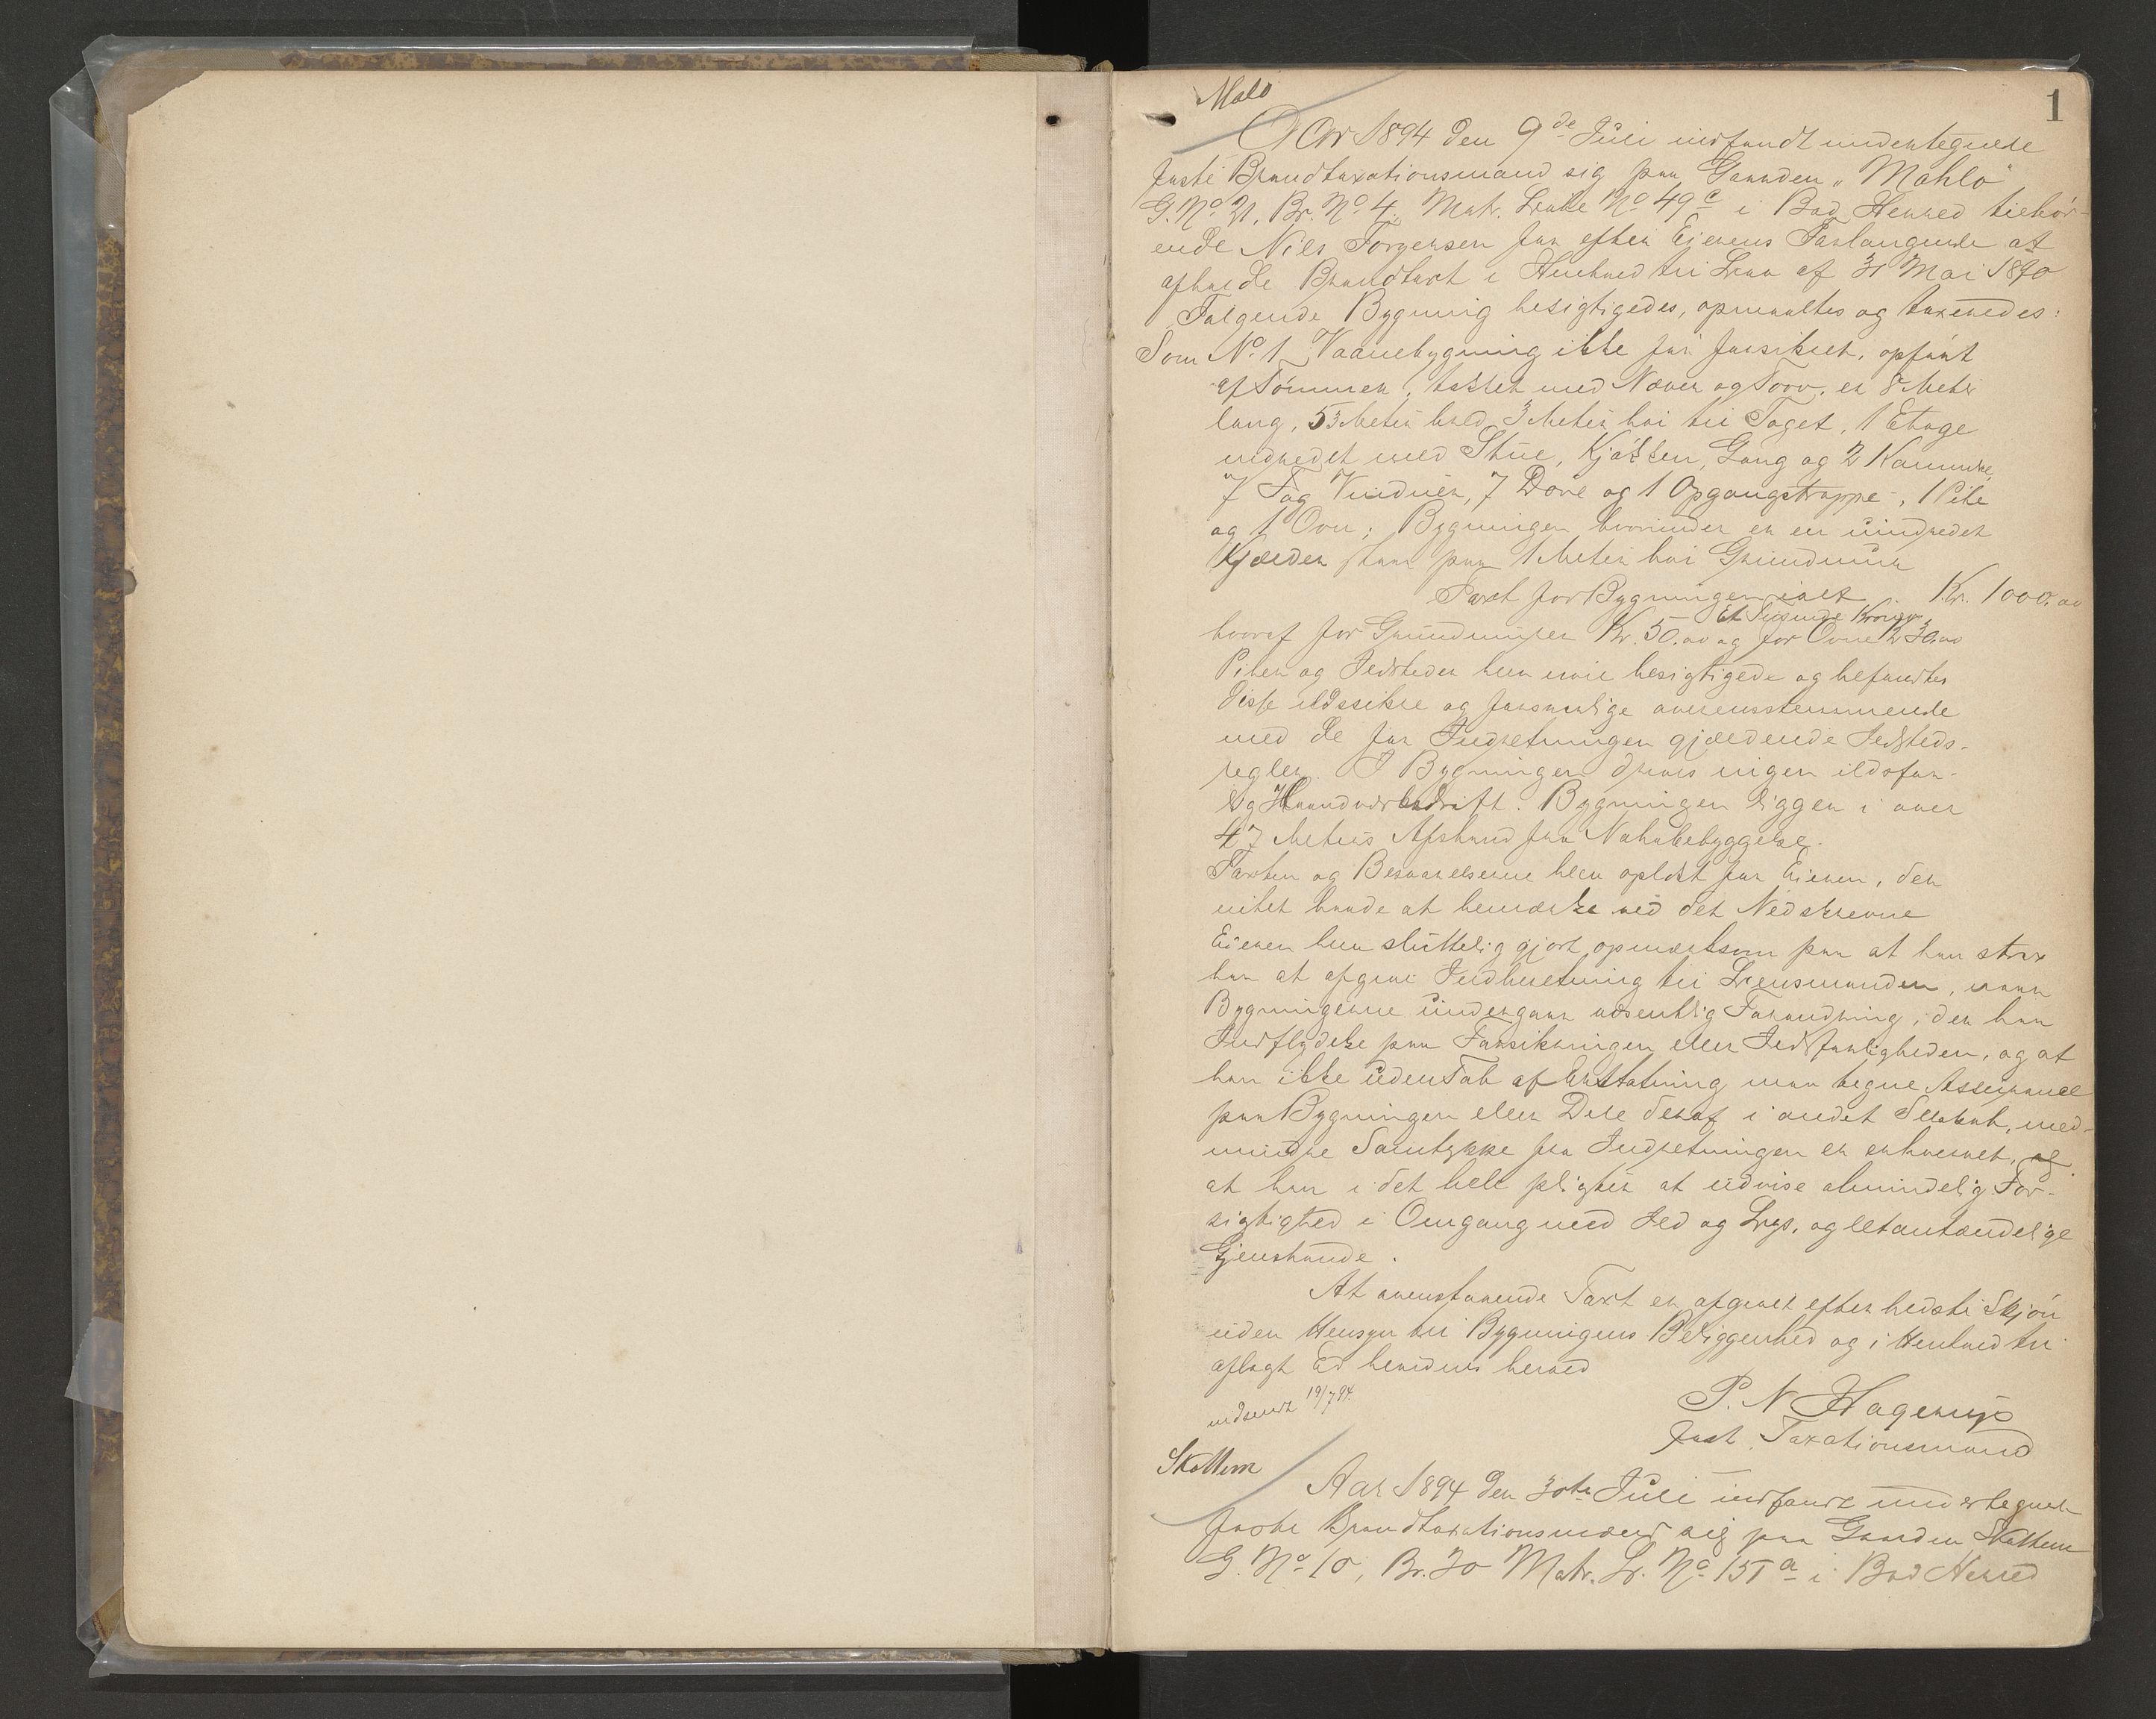 1
Malo
Aar 1894 den 9de Juli indfandt undertegnede
faste Brandtaxationsmand sig paa Gaarden "Mahlo"
G. No 31, Br. No 4. Matr. Løbe No 49c i Bod Herred tilhør-
ende Nils Jørgensen for efter Eierens Forlangende at
afholde Brandtaxt i Henhold til Lov af 31 Mai 1890
Følgende Bygning besigtigedes, opmaaltes og taxeredes:
Som No 1 Vaanebygning ikke før forsikret, opført
af Tømmer, tækket med Næver og Torv, er 8 Meter
lang, 5,3 Meter bred, 3 Meter høi til Taget, 1 Etage
indredet med Stue, Kjøkken, Gang og 2 Kammere,
7 Fag Vinduer, 7 Døre og 1 Opgangstrappe, 1 Pibe
og 1 Ovn; Bygningen hvorunder er en uindredet
Kjælder staar paa 1 Meter høi Grundmur
Taxt for Bygningen ialt Kr. 1000.00
Et Tusinde Kroner
hvoraf for Grundmuren Kr. 50.00 og for Ovne Kr 30.00
Piben og Ildsteder blev nøie besigtigede og befandtes
disse ildssikre og forsvarlige overensstemmende
med de for Indretningen gjældende Ildsteds-
regler. I Bygningen drives ingen ildsfar-
lig Haandværksdrift. Bygningen ligger i over
47 Meters Afstand fra Nabobebyggelse.
Taxten og Besvarelserne blev oplæst for Eieren, der
intet havde at bemærke ved det Nedskrevne
Eieren blev sluttelig gjort opmærksom paa at han strax
har at afgive Indberetning til Lensmanden, naar
Bygningerne undergaar væsentlig Forandring, der har
Indflydelse paa Forsikringen eller Ildsfarligheden, og at
han ikke uden Tab af Erstatning maa tegne Assurance
paa Bygningen eller Dele deraf i andet Selskab, med-
mindre Samtykke fra Indretningen er erhvervet, og
at han i det hele pligter at udvise almindelig For-
sigtighed i Omgang med Ild og Lys, og letantændelige
Gjenstande.
At ovenstaaende Taxt er afgivet efter bedste Skjøn
uden Hensyn til Bygningens Beliggenhed og i Henhold til
aflagt Ed bevidnes herved
indsendt 19/7 94.
P. N Hagerup
fast Taxationsmand
Skottem
Aar 1894 den 30te Juli indfandt undertegnede
faste Brandtaxationsmænd sig paa Gaarden Skottem
G. No 10, Br. 30 Matr. Lr. No 151a i Bod Herred